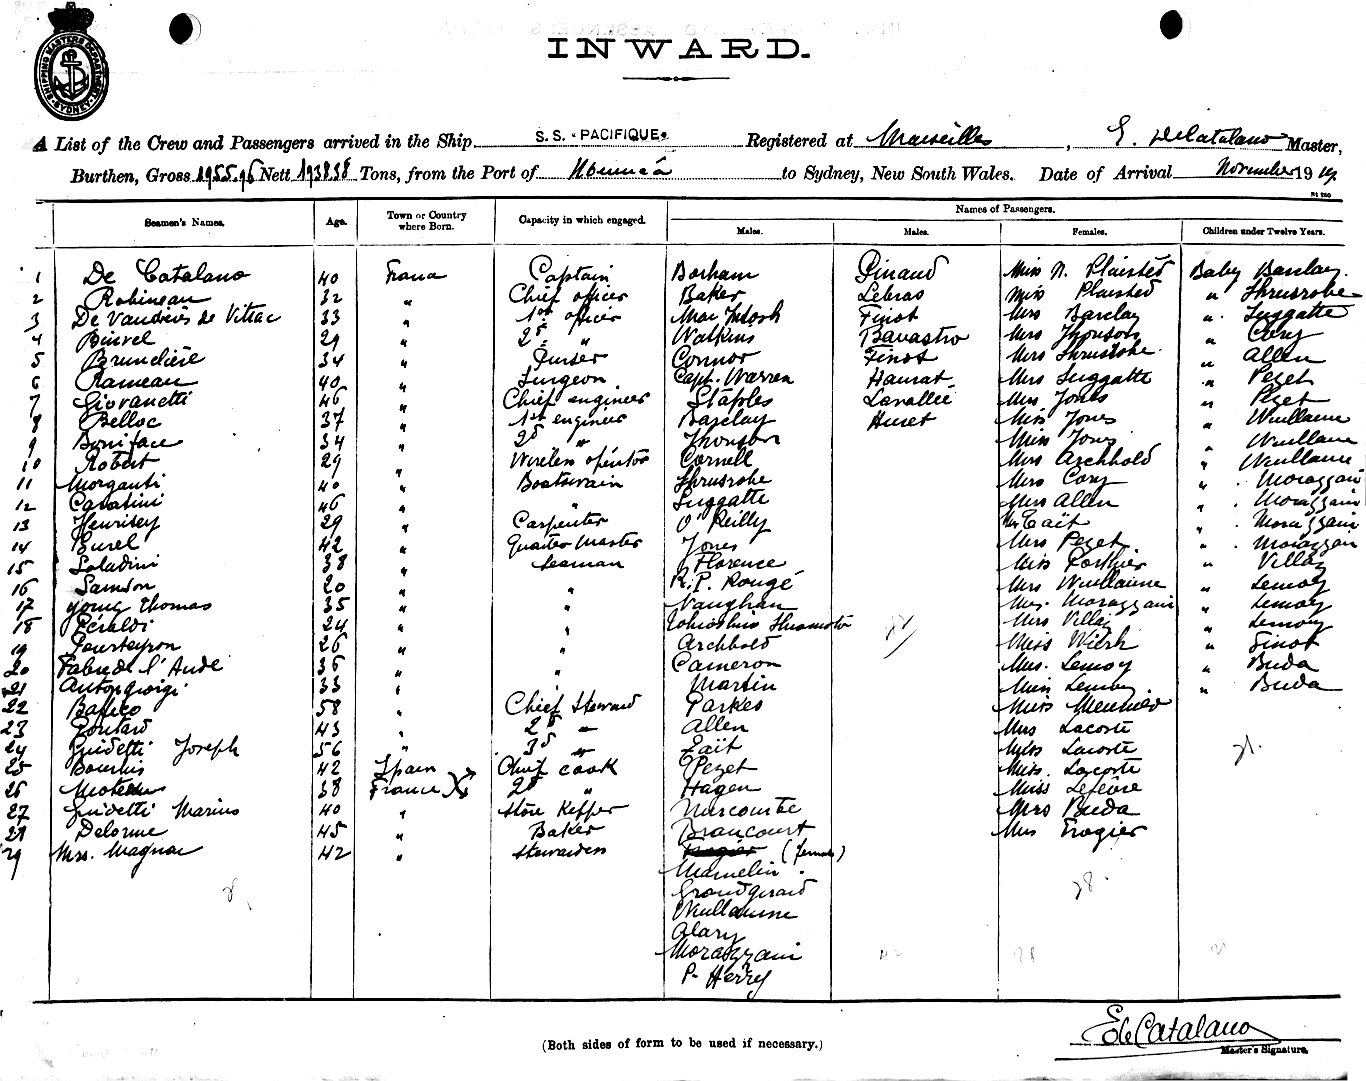 SHIPPING MASTERS DEPARTMENT SYDNEY
INWARD.
A List of the Crew and Passengers arrived in the Ship S.S. "PACIFIQUE" Registered at Marseilles, E. De Catalano Master,
Burthen, Gross 1955.96 Nett 1938.38 Tons, from the Port of Nouméa to Sydney, New South Wales. Date of Arrival November 1914
Names of Passengers.
Seamen's Names. Age. Town or Country where Born. Capacity in which engaged. Males. Males. Females. Children under Twelve Years.
1 De Catalano 40 France Captain Borham Pinaud Miss N. Plaisted Baby Barclay
2 Robineau 32 " Chief officer Baker Lebras Miss Plaisted " Shrusrohe
3 De Vaudrès de Vitrac 33 " 1st officer MacIntosh Finot Mrs Barclay " Suggatte
4 Binvel 29 " 2d " Watkins Bavastro Mrs Thomson " Cory
5 Brundière 34 " Purser Connor Finot Mrs Shrusrohe " Allen
6 Rameau 40 " Surgeon Capt. Warren Haurat Mrs Suggatte " Pezet
7 Giovanetti 46 " Chief engineer Staples Lavallée Mrs Jones " Pezet
8 Belloc 37 " 1st engineer Barclay Huset Miss Jones " Wuillaume
9 Boniface 34 " 2d " Thomson Miss Jones " Wuillaume
10 Robert 29 " Wireless opérator Cornell Mrs Archbold " Wuillaume
11 Morganti 40 " Boatswain Shrusrohe Mrs Cory " Morazzani
12 Casatini 46 " Suggatte Mrs Allen " Morazzani
13 Henrisey 29 " Carpenter O'Reilly Mrs Eaït " Morazzani
14 Burel 42 " Quarter Master Jones Mrs Pezet " Morazzani
15 Saladini 38 " Seaman Florence Miss Porthier " Villaz
16 Samson 20 " " R.P. Rougé Mrs Wuillaume " Lemoy
17 Young Thomas 35 " " Vaughan Mrs. Morazzani " Lemoy
18 Péraldi 24 " " Mrs Villaz " Lemoy
19 Peurteyron 26 " " Archbold Miss Welsh " Finot
20 Fabre de l'Aude 36 " " Cameron Mrs. Lemoy " Buda
21 Antongiorgi 33 " Martin Miss Lemoy " Buda
22 58 " Chief Steward Parkes Miss
23 Goutard 43 " 2d " Allen Mrs Lacoste
24 Guidetti Joseph 56 " 3d " Eaït Miss Lacoste
25 Bourhis 42 Spain Chief cook Pezet Miss. Lacoste 21.
26 38 France X 2d " Hagen Miss Lefèvre
27 Guidetti Marius 40 " Store Kepper Mrs Buda
28 Delorme 45 " Baker Brancourt Mrs Frogier
29 Mrs. Magnac 42 " Stewardess Frogier (female)
Mamelin
Grandgirard 28.
Wuillaume
Alary
Morazzani 42 28 21
P. Herry
E de Catalano
Master's Signature.
(Both sides of form to be used if necessary.)